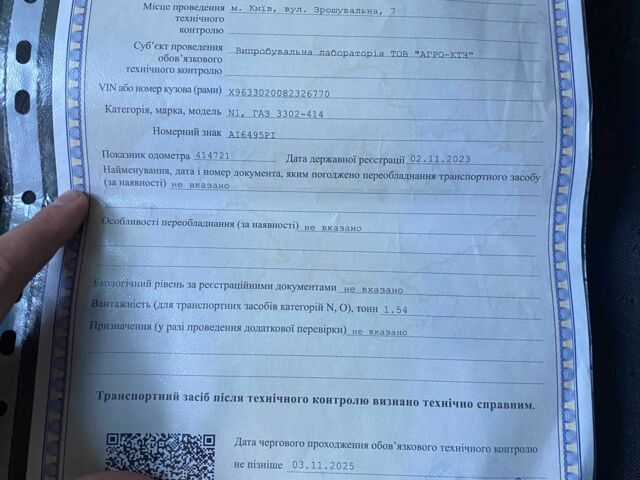 Місце проведення м. Київ, вул. Зрошувальна, 7
технічного
контролю
Суб'єкт проведення Випробувальна лабораторія ТОВ "АГРО-КТЗ"
обов'язкового
технічного контролю
VIN або номер кузова (рами) X9633020082326770
Категорія, марка, модель N1, ГАЗ 3302-414
Номерний знак AI6495PI
Показник одометра 414721 Дата державної реєстрації 02.11.2023
Найменування, дата і номер документа, яким погоджено переобладнання транспортного засобу
(за наявності) не вказано
Особливості переобладнання (за наявності) не вказано
Екологічний рівень за реєстраційними документами не вказано
Вантажність (для транспортних засобів категорій N, O), тонн 1.54
Призначення (у разі проведення додаткової перевірки) не вказано
Транспортний засіб після технічного контролю визнано технічно справним.
Дата чергового проходження обов'язкового технічного контролю
не пізніше 03.11.2025